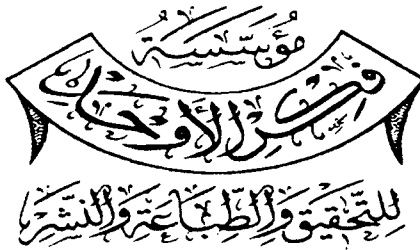 مُؤَسَّسَة
فِكْرِ الأَوْحَد
لِلتَّحْقِيقِ وَالطِّبَاعَةِ وَالنَّشْرِ